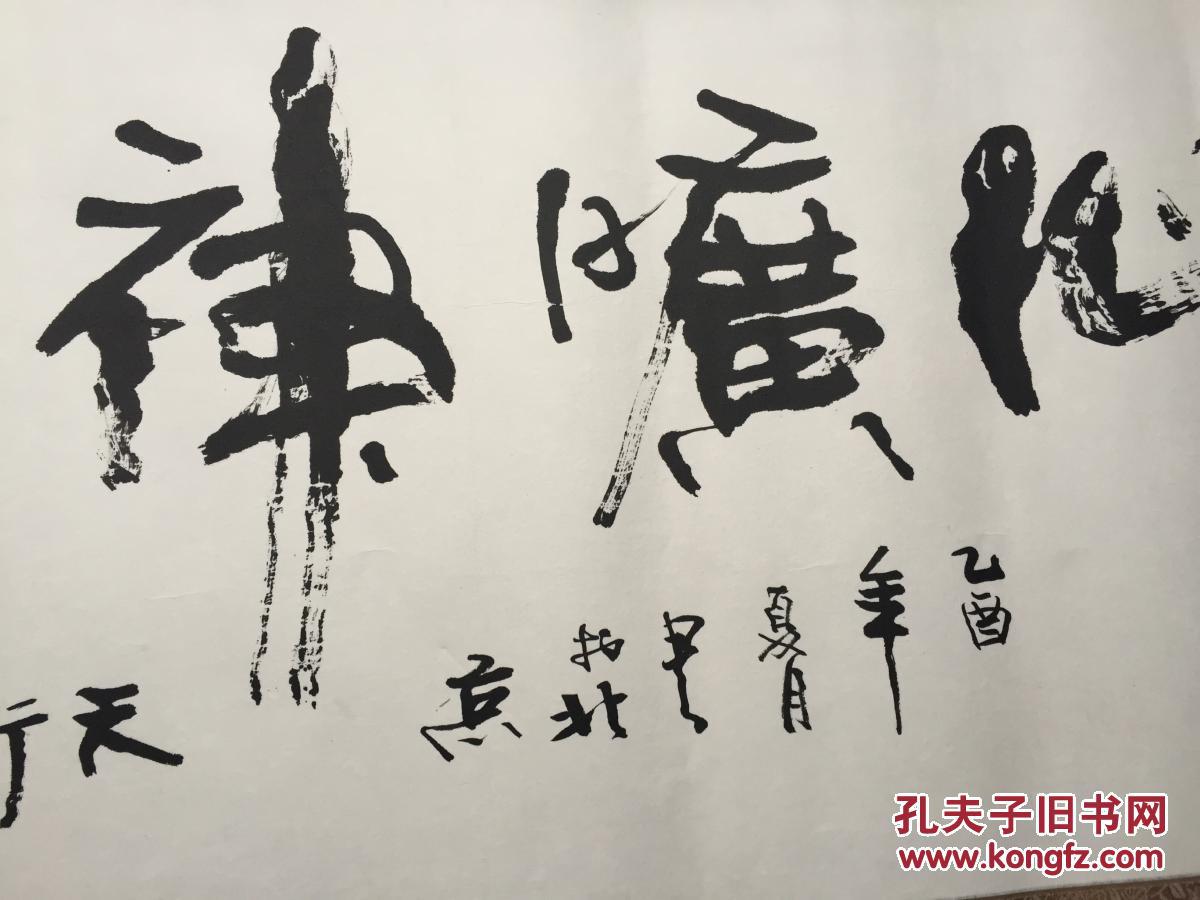 心曠神
乙酉年夏月书於北京
天
孔夫子旧书网
www.kongfz.com